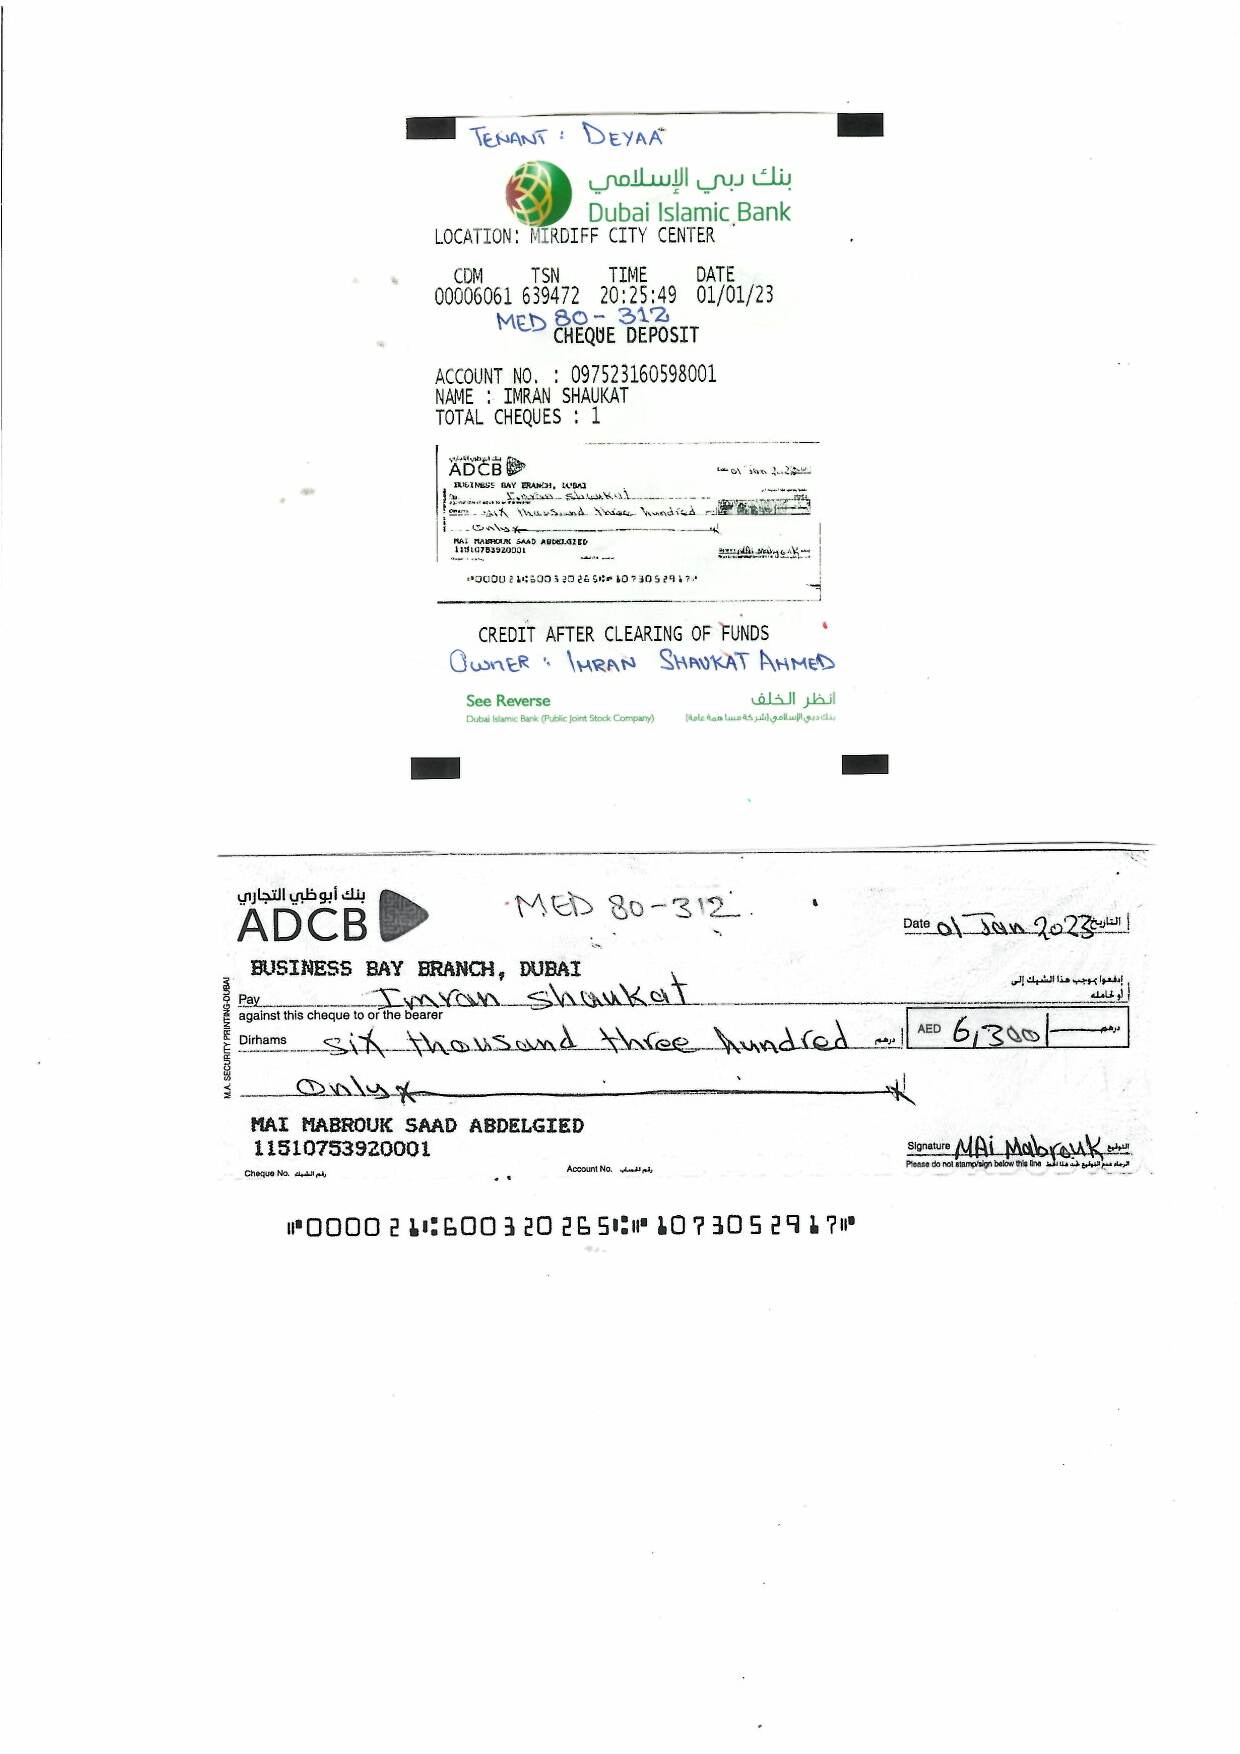 TENANT : DEYAA
بنك دبي الإسلامي
Dubai Islamic Bank
LOCATION: MIRDIFF CITY CENTER
CDM TSN TIME DATE
00006061 639472 20:25:49 01/01/23
MED 80-312
CHEQUE DEPOSIT
ACCOUNT NO. : 097523160598001
NAME : IMRAN SHAUKAT
TOTAL CHEQUES : 1
ADCB
01 Jan
BUSINESS BAY BRANCH, DUBAI
Imran Shaukat
six thousand three hundred
Only
MAI MABROUK SAAD ABDELGIED
11510753920001
⑈000021⑆600320265⑆⑈1073052917⑈
CREDIT AFTER CLEARING OF FUNDS
OWNER : IMRAN SHAUKAT AHMED
See Reverse انظر الخلف
Dubai Islamic Bank (Public Joint Stock Company) بنك دبي الإسلامي (شركة مساهمة عامة)
بنك أبوظبي التجاري
ADCB
MED 80-312
Date 01 Jan 2023 التاريخ
BUSINESS BAY BRANCH, DUBAI
إدفعوا بموجب هذا الشيك إلى
Pay Imran Shaukat أو لحامله
against this cheque to or the bearer
Dirhams six thousand three hundred درهم AED 6,300 درهم
Only
M.A. SECURITY PRINTING-DUBAI
MAI MABROUK SAAD ABDELGIED
11510753920001
Signature MAi Mabrouk التوقيع
Please do not stamp/sign below this line
Cheque No. رقم الشيك Account No. رقم الحساب
⑈000021⑆600320265⑆⑈1073052917⑈